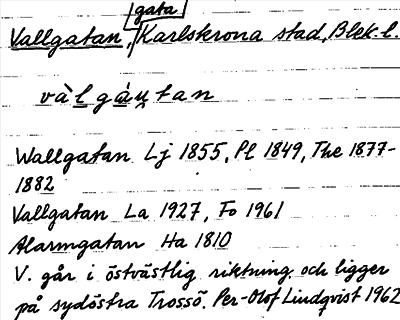 gata
Vallgatan, Karlskrona stad, Blek. l.
và l g à u̯ t a n
Wallgatan Lj 1855, Pl 1849, The 1877-
1882
Vallgatan La 1927, Fo 1961
Alarmgatan Ha 1810
V. går i östvästlig riktning och ligger
på sydöstra Trossö. Per-Olof Lindqvist 1962